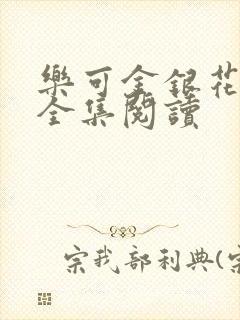 樂可金銀花
全集閱讀
宗我部利典(宗